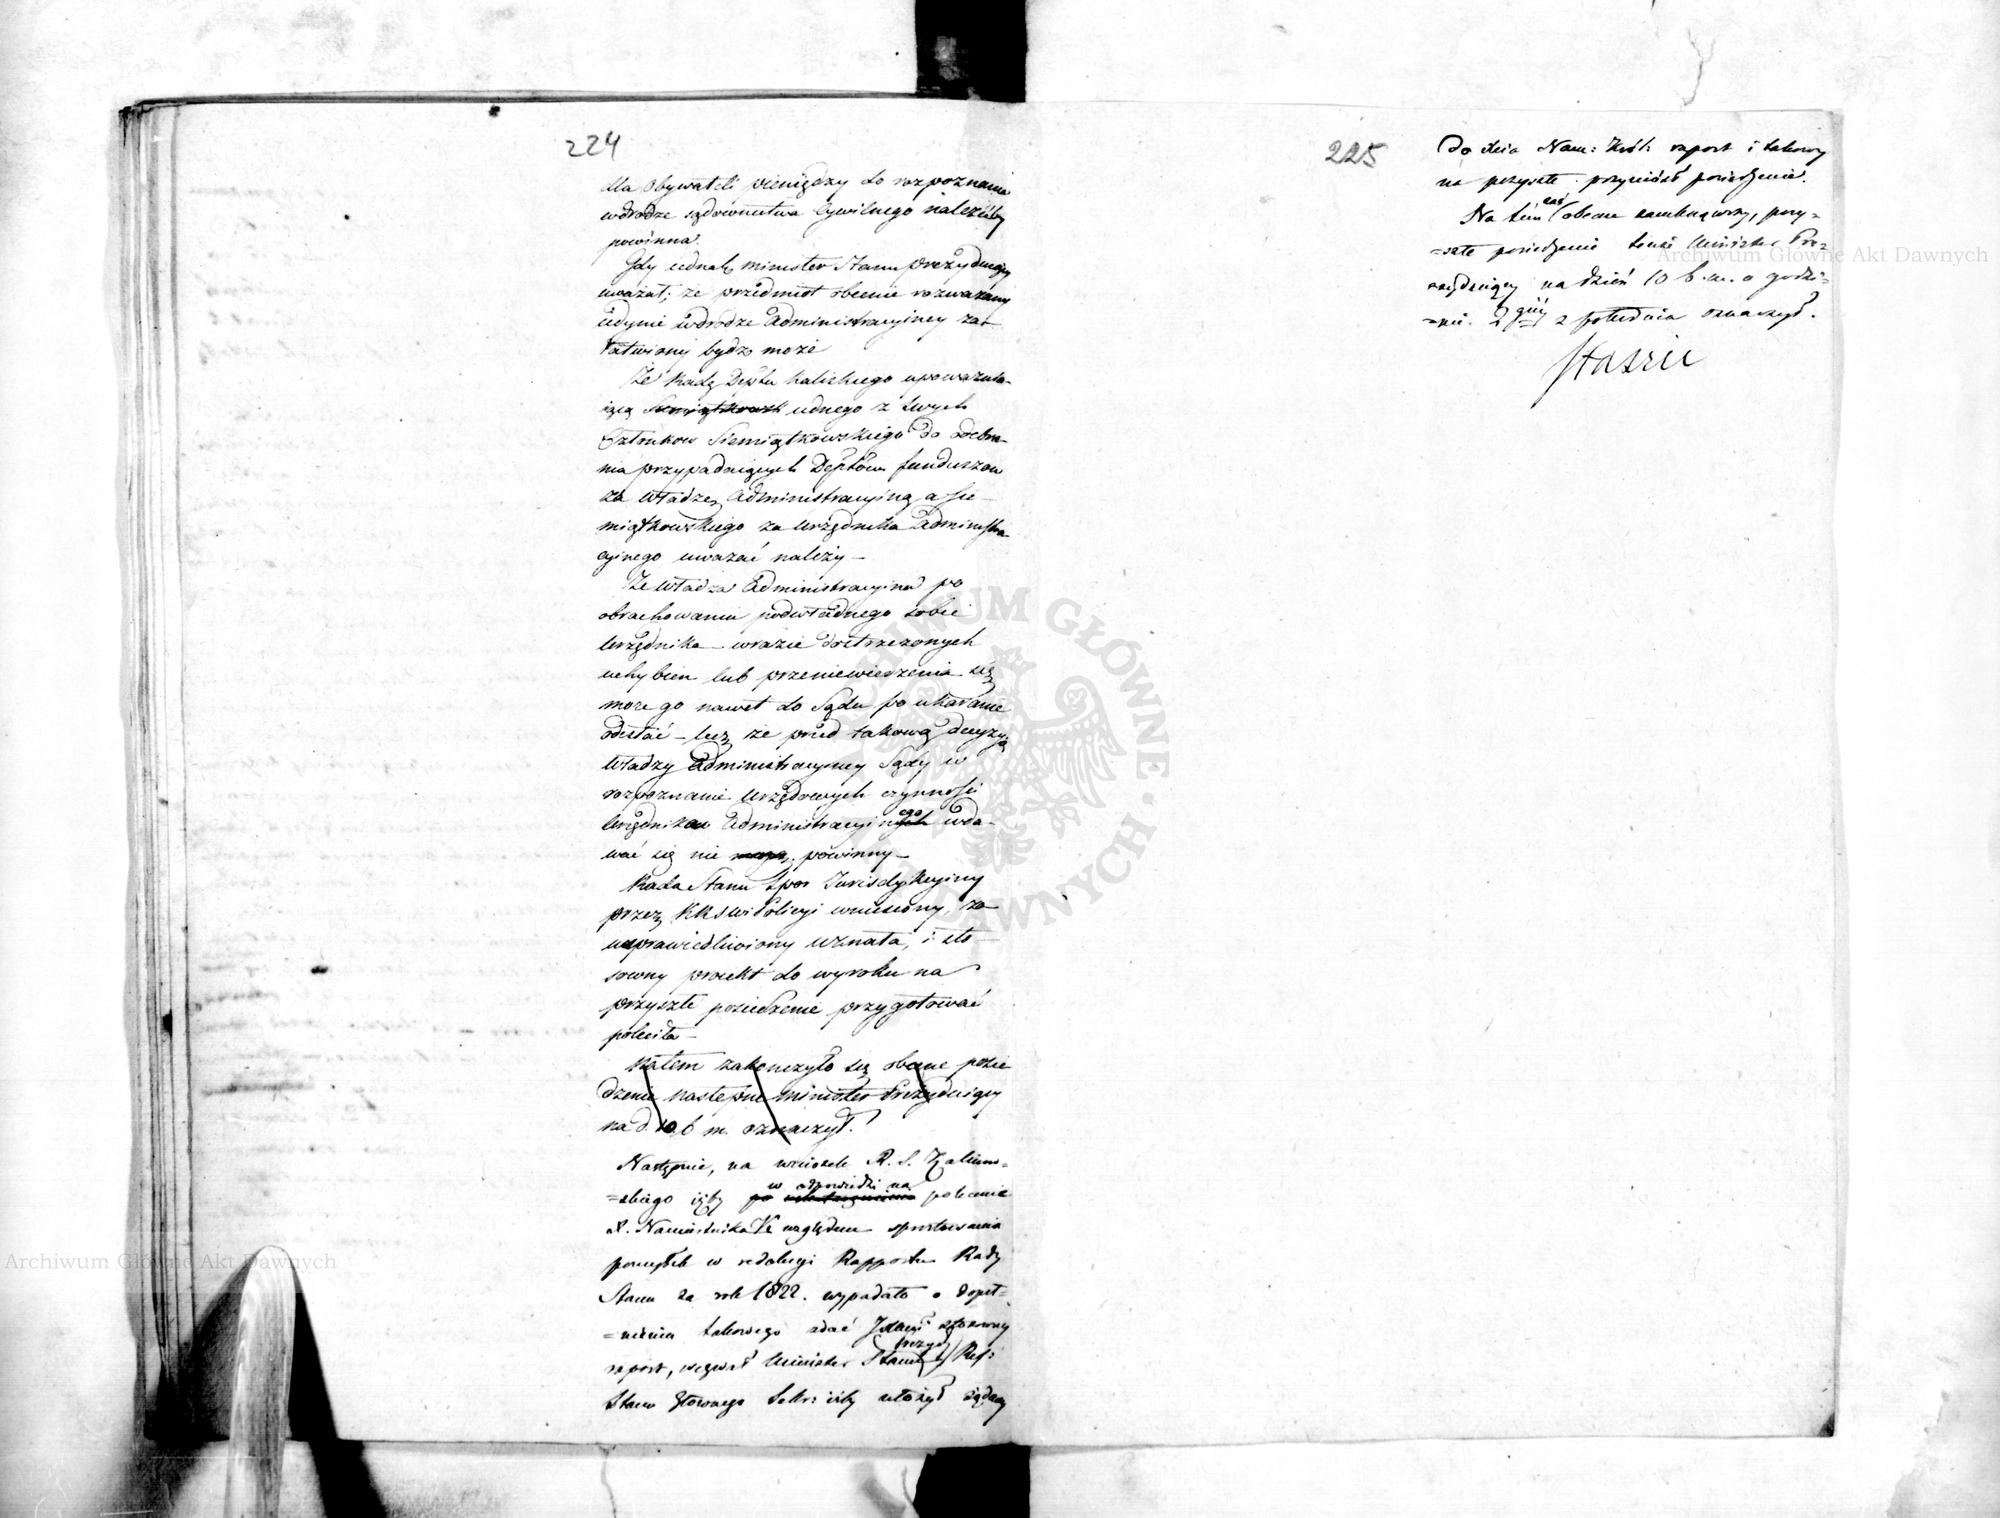 224
dla obywateli pieniędzy do rozpoznania
wdrodze sądownictwa Cywilnego należéćby
powinna.
Gdy iednak minister Stanu prezyduiący
uważał; że przedmiot obecnie rozważany
iedynie wdrodze administracyiney zał
łatwiony bydź może
że Radę Deptu kaliskiego upoważnia-
iącą iednego z swych
Członkow Siemiątkowskiego do odebra-
nia przypadaiących Deptowi funduszow
za władzę administracyiną a Sie-
miątkowskiego za urzędnika administra-
cyinego uważać należy -
że władza administracyina po
obrachowaniu podwładnego sobie
urzędnika - wrazie dostrzeżonych
uchybien lub przeniewierzenia się
może go nawet do Sądu po ukaranie
odesłać - lecz że przed takową decyzyą
władzy administracyiney Sądy w
rozpoznanie urzędowych czynności
urzędnika administracyinego wda-
wać się nie powinny -
Rada Stanu Spor Jurisdykcyiny
przez KRSWiPolicyi wniesiony, za
usprawiedliwiony uznała, i sto-
sowny proiekt do wyroku na
przyszłe posiedzenie przygotować
poleciła -
Natem zakonczyło się obecne posie
dzenie następne minister Prezyduiący
na d. 10 b m. oznaczył.
Następnie, na wniosek R. S. Kalinow=
=skiego iżby w odpowiedzi na polecenie
X. Namiestnika we względzie sprostowania
pomyłek w redakcyi Rapportu Rady
Stanu za rok 1822. wypadało o dopeł=
=nieniu takowego zdać Jemuż stosowny
raport, wezwał Minister Stanu Prezyd: Ref:
Stanu Głównego Sekr: iżby ułożył żądany
225
Do Xcia Nam: Król: raport i takowy
na przyszłe przyniósł posiedzenie.
Na tém zaś obecne zamknąwszy, przy=
=szłe posiedzenie tenże Minister Pre=
zyduiący na dzień 10 b. m. o godzi=
=nie 2giéy z południa oznaczył.
Staszic
ARCHIWUM GŁÓWNE AKT DAWNYCH
Archiwum Główne Akt Dawnych
Archiwum Główne Akt Dawnych